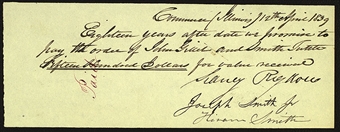 Commerce Illinois 12th April 1839
Eighteen years after date we promise to
pay the order of John Gaul and Smith Tuttle
Fifteen Hundred Dollars for value received
Paid
Sidney Rigdon
Joseph Smith Jr
Hiram Smith